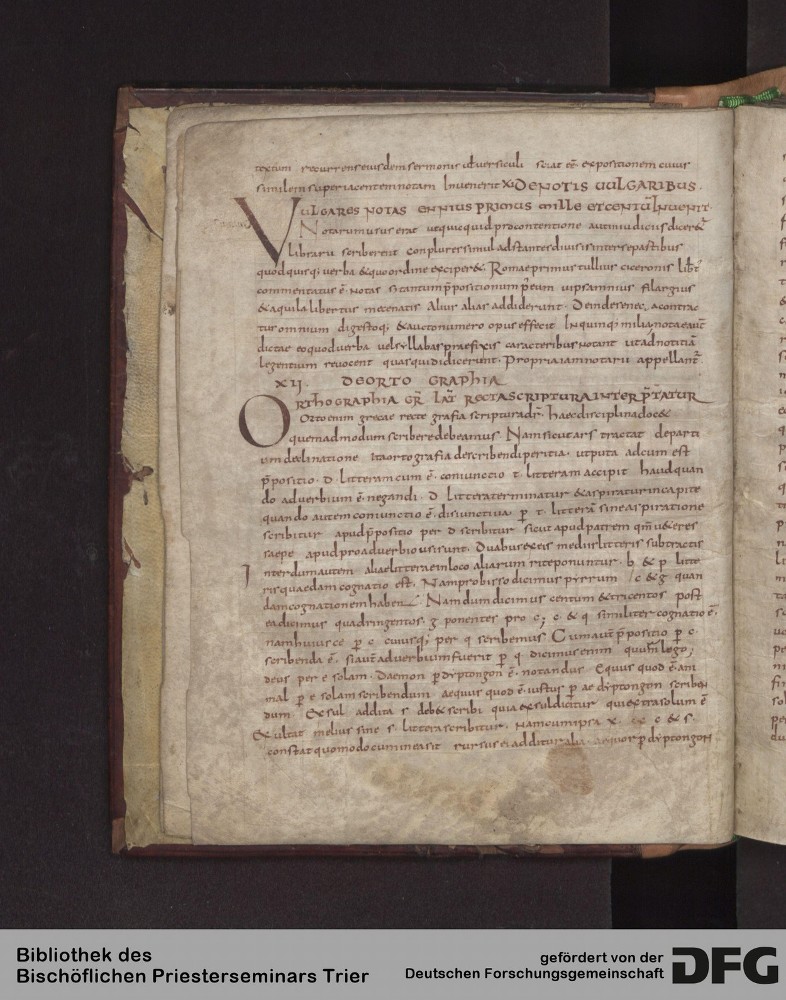 textum recurrens eiusdem sermonis ul versiculi sciat ee expositionem cuius
similem superiacentem notam Inuenerit XI DE NOTIS UULGARIBUS.
VULGARES NOTAS ENNIUS PRIMUS MILLE ET CENTU INUENIT.
Notarum usus erat utquicquid pro contentione aut in iudicus dicer&
librarii scriberent conplures simul adstantes diuisis inter se partibus
quod quisq; verba & quo ordine exciper&. Romae primus tullius ciceronis libt
commentatus ē. Notas s; tantum ppositionum p eum uipsannius filargius
& aquila libertus mecenatis Alius alias addiderunt. Deinde senec, a contrac
tur omnium digestoq; & aucto numero opus effecit In quinq; milia, notae aut
dictae eo quod uerba uel syllabas praefixis caracteribus notant ut ad notitiā
legentium reuocent quas qui didicerunt. Propriae iam notarii appellant
XII. DE ORTO GRAPHIA
ORTHOGRAPHIA GR LAT RECTA SCRIPTURA INTERPTATUR
Orto enim grecae recte grafia scriptura dr. haec disciplina doc&
quemadmodum scribere debeamus. Nam sicut ars tractat de parti
um declinatione Ita ortografia de scribendi peritia. utputa ad cum est
ppositio. d. litteram cum ē. coniunctio t. litteram accipit haud quan
do aduerbium ē. negandi. d. littera terminatur & aspiratur in capite
quando autem coniunctio ē. disiunctiua. p t. litterā sine aspiratione
scribitur apud ppositio per d scribitur sicut apud patrem qm ueteres
saepe apud pro aduerbio usi sunt. Duabus ex eis mediis litteris subtractis
Interdum autem aliae litterae in loco aliarum rite ponuntur. b & p litte
ris quaedam cognatio est. Nam pro birro dicimus pyrrum / c & g quan
dam cognationem haben. Nam dum dicimus centum & tricentos post
ea dicimus quadringentos g ponentes pro c; c & q similiter cognatio ē.
nam huiusce p c cuiusq; per q scribemus Cum aut ppositio p c.
scribenda ē. si aut aduerbium fuerit p q dicimus enim quum lego;
deus per e solam. Daemon p dyptongon ē. notandus Equus quod ē. ani
mal p e solam scribendum aequus quod ē. iustus p ae dyptongon scriben
dum Exsul addita s deb& scribi quia exsul dicitur qui extra solum ē
Exultat melius sine s littera scribitur. Nam cum ipsa x ex c & s
constat quomodo cum in ea sit rursus ei additur alia. aequor p dyptongon
Bibliothek des
Bischöflichen Priesterseminars Trier
gefördert von der
Deutschen Forschungsgemeinschaft
DFG